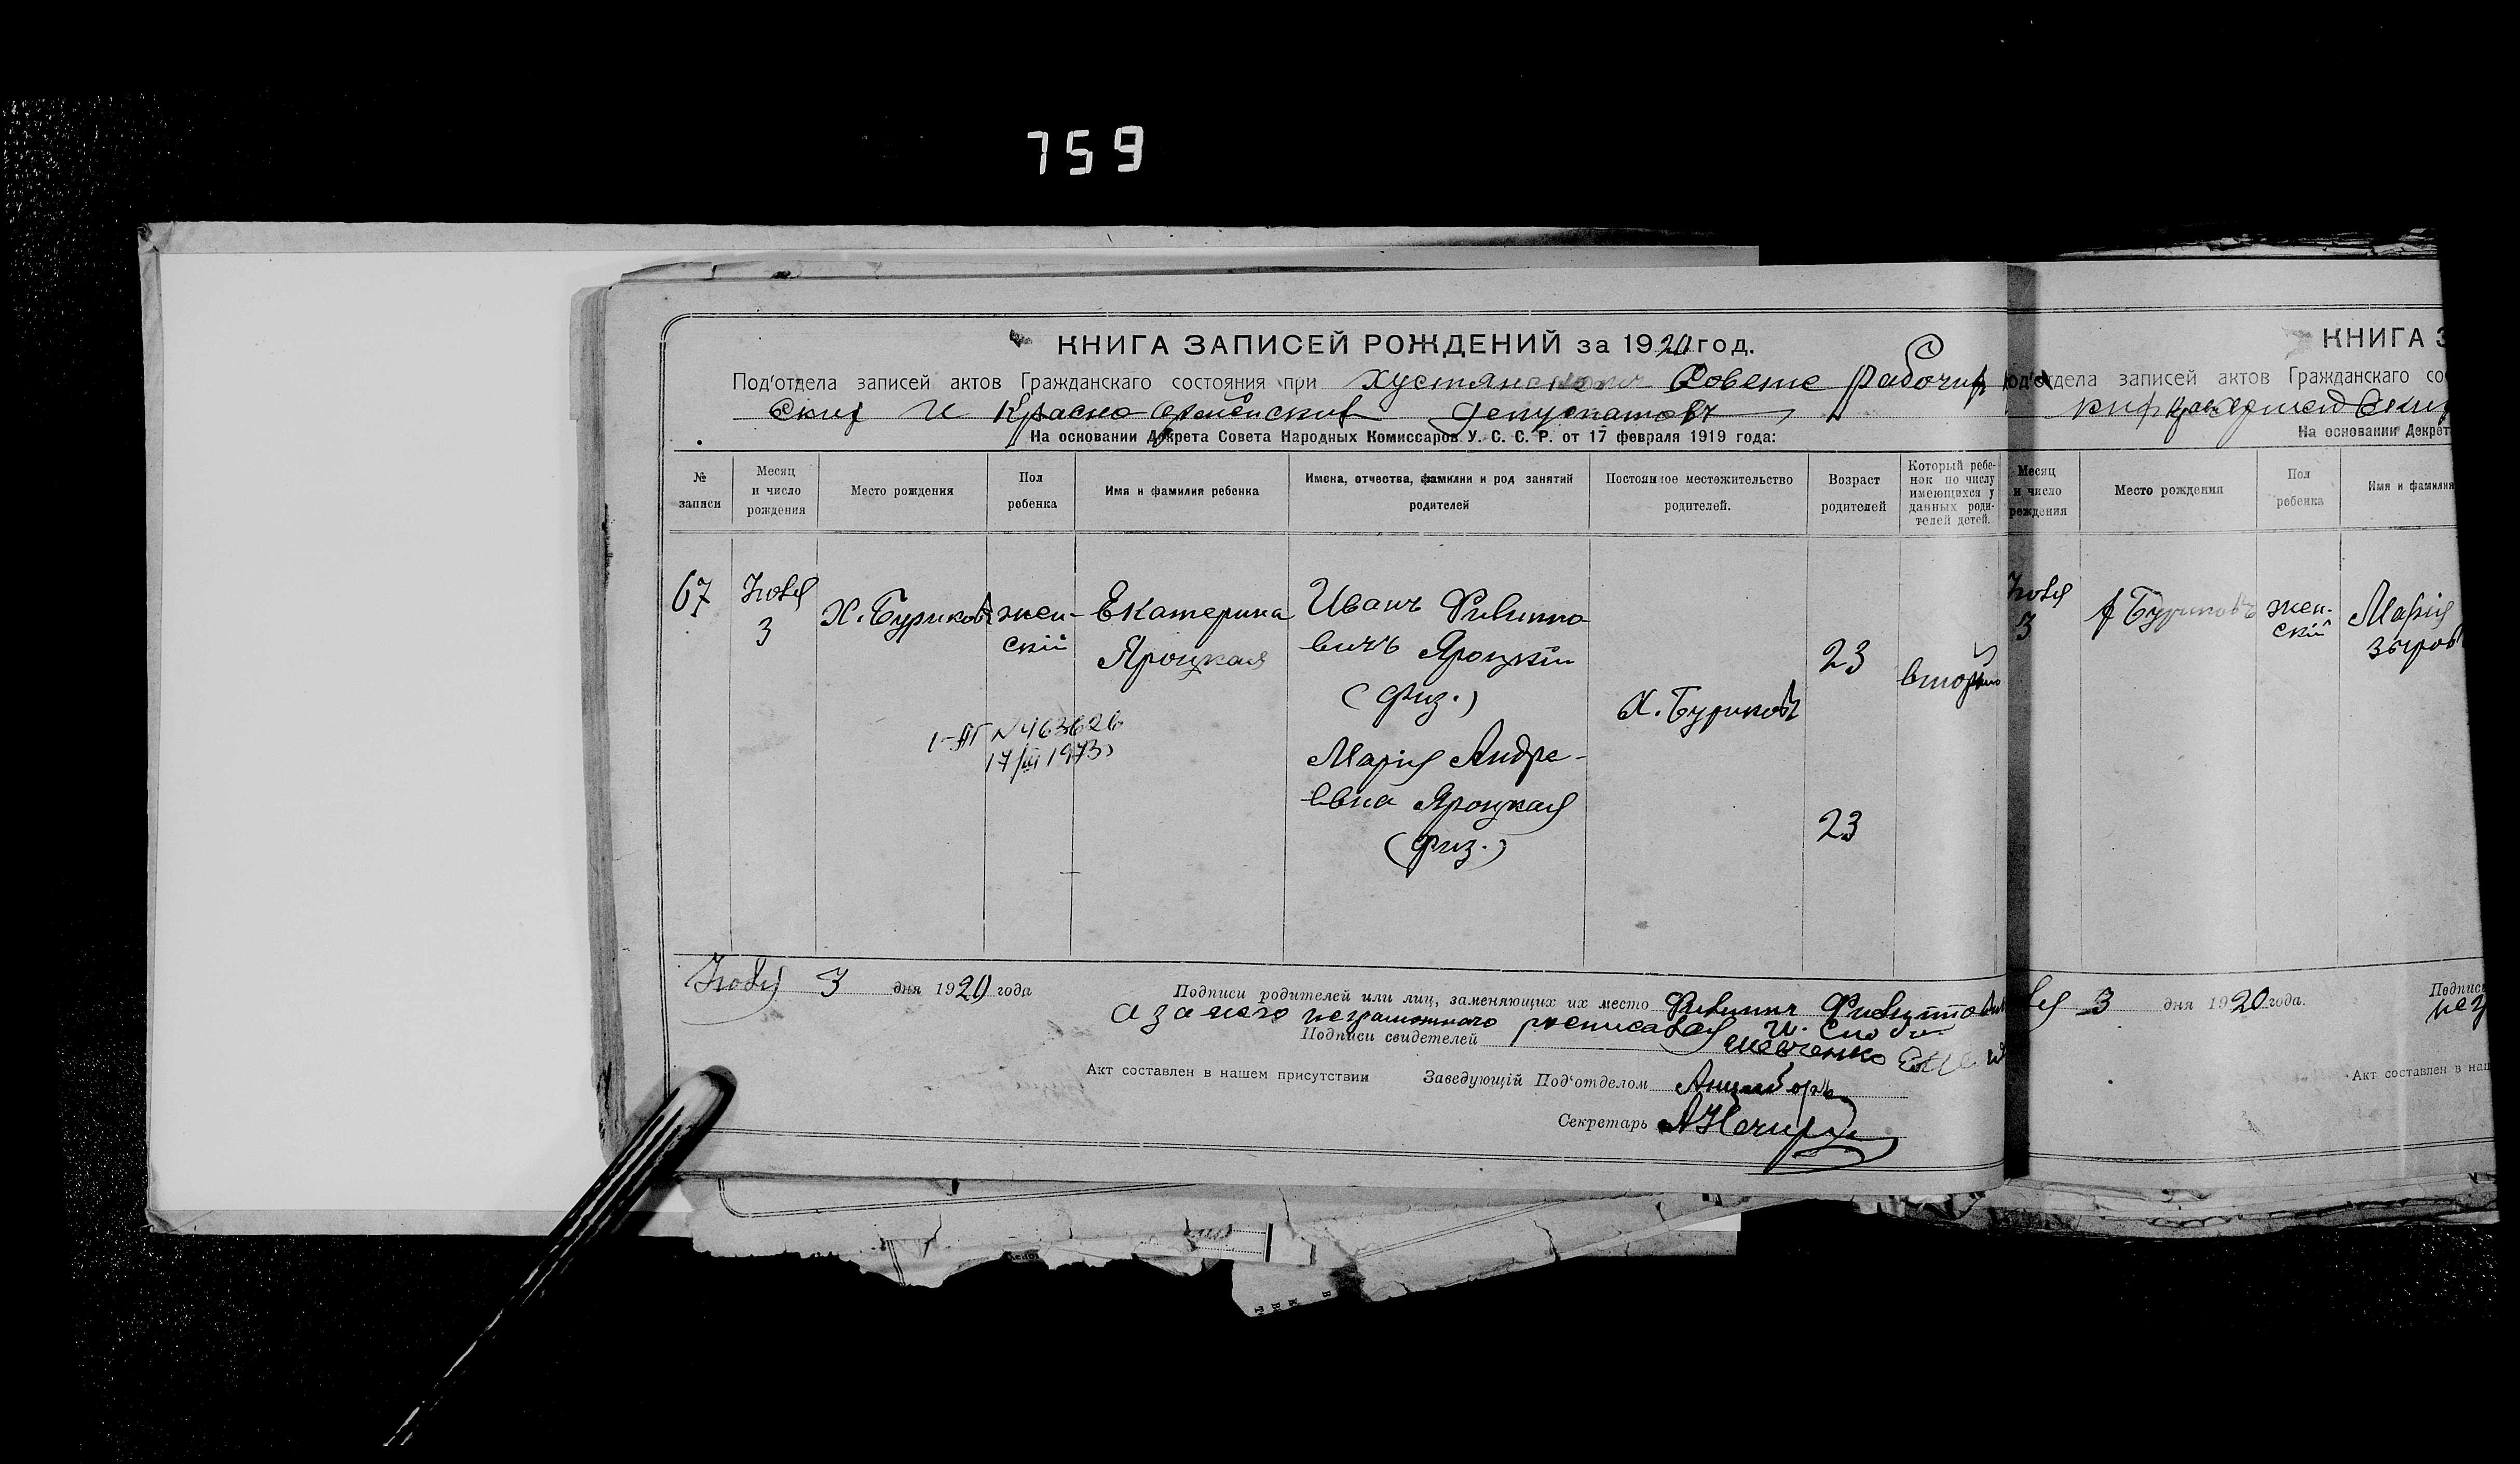 759
КНИГА ЗАПИСЕЙ РОЖДЕНИЙ за 1920 год.
Под'отдела записей актов Гражданскаго состояния при Хустянском Совете Рабочих
ских и Красно армейских депутатов
На основании Декрета Совета Народных Комиссаров У. С. С. Р. от 17 февраля 1919 года:
№ записи
Месяц и число рождения
Место рождения
Пол ребенка
Имя и фамилия ребенка
Имена, отчества, фамилии и род занятий родителей
Постоянное местожительство родителей.
Возраст родителей
Который ребе-
нок по числу
имеющихся у
данных роди-
телей детей.
67
3
Х. Буриковъ
жен-
скій
Екатерина
Яроцкая
Иванъ Филиппо
вичъ Яроцкій
(физ.)
Марія Андре-
евна Яроцкая
(физ.)
Х. Буриковъ
23
23
N 463626
17/III 1973
3 дня 1920 года
Подписи родителей или лиц, заменяющих их место Филиппъ
а за него неграмотного росписался И.
Подписи свидетелей Шевченко
Акт составлен в нашем присутствии Заведующій Под'отделом
Секретарь
КНИГА З
од'отдела записей актов Гражданскаго со
На основании Декрет
Месяц и число рождения
Место рождения
Пол ребенка
Имя и фамилия
3
Буриковъ
жен-
скій
Марія
3 дня 1920 года.
Подписи
Акт составлен в наш